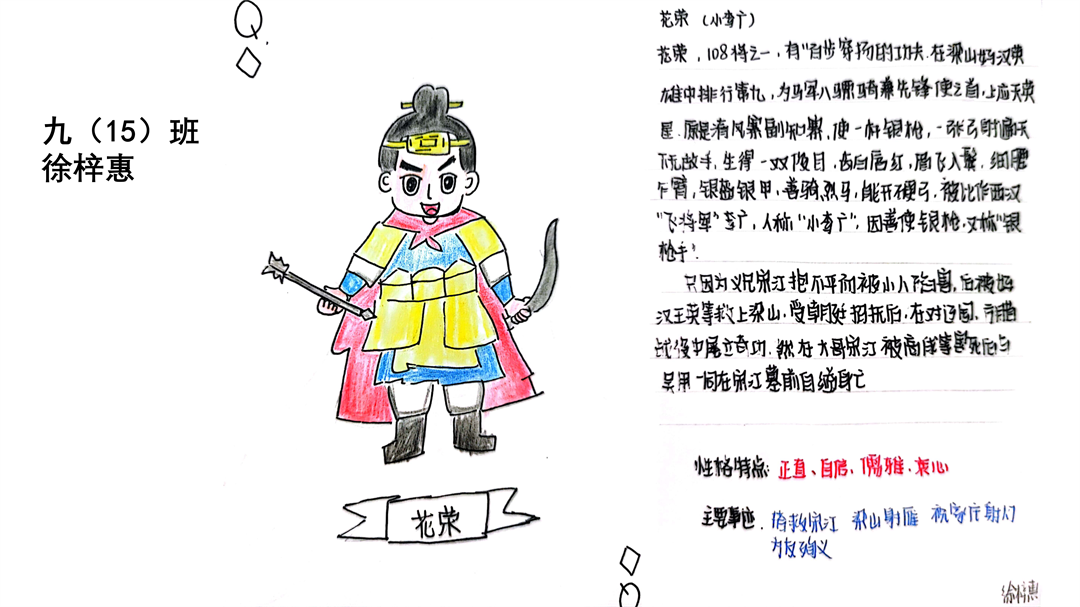 九（15）班
徐梓惠
Q
花荣
Q
花荣（小李广）
花荣，108将之一，有"百步穿杨的功夫.在梁山好汉英
雄中排行第九，为马军八骠骑兼先锋使之首，上应天英
星.原是清风寨副知寨，使一杆银枪，一张弓射遍天
下无敌手，生得一双俊目，齿白唇红，眉飞入鬓，细腰
乍臂，银盔银甲，善骑烈马，能开硬弓，被比作西汉
"飞将军"李广，人称"小李广"，因善使银枪，又称"银
枪手"
只因为义兄宋江抱不平而被小人陷害，后被好
汉王英等救上梁山，受朝廷招抚后，在对辽国、方腊
战役中屡立奇功，然在大哥宋江被高俅等害死后与
吴用一同在宋江墓前自缢身亡
性格特点：正直、自信、儒雅、衷心
主要事迹. 侍救宋江 梁山射雁 祝家庄射灯
为友殉义
徐梓惠